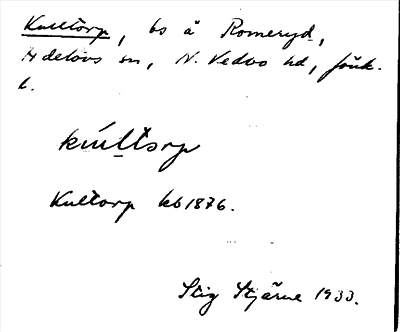 Kulltorp, bs å Romeryd,
Adelövs sn, N. Vedbo hd, Jönk.
l.
kúlltorp
Kultorp kb 1876.
Stig Stjärne 1933.